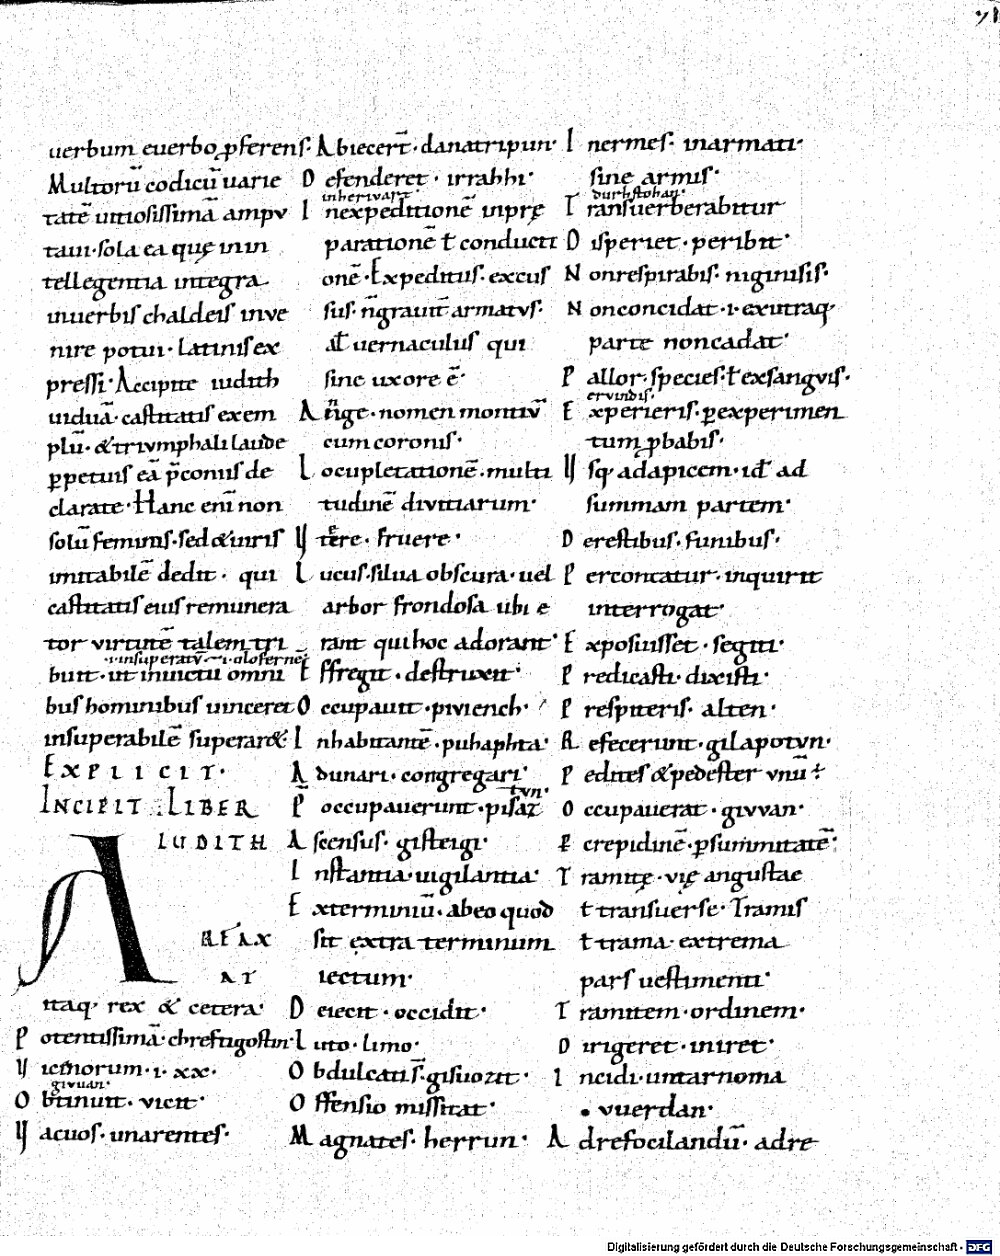 71
uerbum euerbo ꝓferens·
Multorū codicū uarie
tatē uitiosissimā ampv
taui· sola ea quę inin
tellegentia integra
inuerbis chaldeis inve
nire potui· Latinis ex
pressi· Accipite iudith
uiduā· castitatis exem
plū· &trivmphali laude
ꝑpetuis eā p̄coniis de
clarate· Hanc eni̅ non
solū feminis· sed &uiris
imitabilē dedit· qui
castitatis eius remunera
tor virtutē talem tri
·i·insuperatū ·i·olofernē
buit· ut inuictū omni
bus hominibus uinceret
insuperabilē superar&·
EXPLICIT·
INCIPIT LIBER
IUDITH
ARFAX
AT
itaq· rex & cetera·
Potentissimā· chreftigostin·
Vicinorum·i·xx·
givuan·
Obtinuit· vicit·
Vacuos· unarentes·
Abiecer̄t· danatripun·
Defenderet· irrahhi·
inherivart
Inexpeditionē inprę
parationē ł conducti
onē· Expeditus· excus
sus· n̄grauit̄ armatvs·
Aɫ uernaculus qui
sine uxore ē·
Ar̄ge· nomen montiv̄
cum coronis·
Locupletationē· multi
tudinē divitiarum·
Vtere· fruere·
Lucus· silua obscura· uel
arbor frondosa ubi e
rant qui hoc adorant·
Effregit· destruxit·
Occupauit· piviench·
Inhabitantē· puhaphta·
Adunari· congregari·
tvn·
P̄occupauerunt· pisaz
Ascensus· gisteigi·
Instantia· uigilantia·
Exterminiū· abeo quod
sit extra terminum
iectum·
Deiecit· occidit·
Luto· limo·
Obdulcati s̄· gisuozit·
Offensio missitat·
Magnates· herrun·
Inermes· inarmati·
sine armis·
durhstohan·
Transuerberabitur
Disperiet· peribit·
Nonrespirabis· niginisis·
Nonconcidat·i·exutraq·
parte noncadat·
Pallor· species· ł exsangvis·
ervindis·
Experieris· ꝑexperimen
tum ꝓbabis·
Vsq· adapicem· id̄ ad
summam partem·
Derestibus· funibus·
Percontatur· inquirit
interrogat·
Exposuisset· segiti·
Predicasti· dixisti·
Prespiteris· alten·
Refecerunt· gilapotvn·
Pedites &pedester vnū ÷
Occupauerat· givvan·
P̱crepidinē· ꝑsummitatē·
Tramitę· vię angustae
ł transuerse· Tramis
ł trama· extrema
pars uestimenti·
Tramitem· ordinem·
Dirigeret· iniret·
Incidi· untarnoma
· vuerdan·
Adrefocilandū· adre
Digitalisierung gefördert durch die Deutsche Forschungsgemeinschaft - DFG